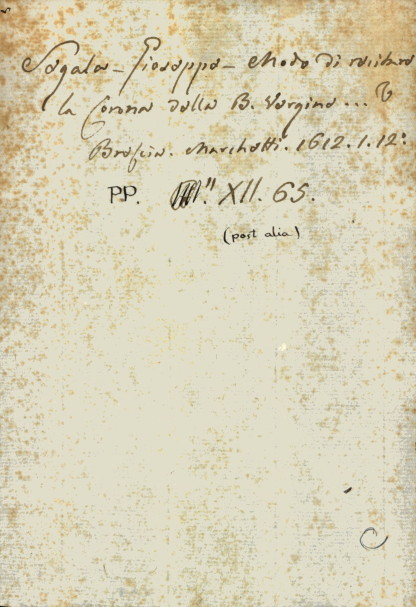 Segala - Gioseppe - Modo di recitare
la Corona della B. Vergine ...
Brescia. Marchetti. 1612. 1. 12º
PP. XII. 65.
(post alia)